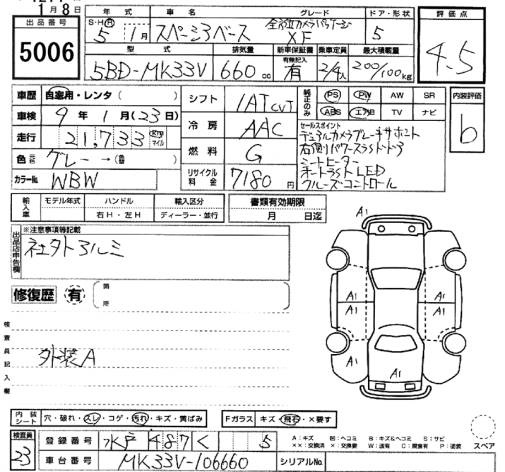 月8日
出品番号 5006
年式 車名 グレード ドア・形状 評価点
S・H・R 5年1月 スペーシアベース 全方位カメラパッケージ XF 5 4.5
型式 排気量 新車保証書 乗車定員 最大積載量
5BD-MK33V 660cc 有無記入 有 2/4人 200/100kg
車歴 自家用・レンタ( )
車検 9年1月(23日)
走行 21,733 km マイル
色 グレー→(替)
カラーNo. WBW
シフト 1AT CVT
冷房 AAC
燃料 G
リサイクル料金 7180円
純正のみ PS PW AW SR
ABS エアB TV ナビ
内装評価 b
セールスポイント
デュアルカメラブレーキサポート
右側パワースライドドア
シートヒーター
オートライトLED
クルーズコントロール
輸入車 モデル年式 ハンドル 輸入区分 書類有効期限
右H・左H ディーラー・並行 月 日迄
出品店申告欄 ※注意事項等記載
社外アルミ
修復歴 有 箇所
検査員記入欄
外装A
A1
A1 A1
A1 A1
A1
内装シート 穴・破れ・スレ・コゲ・汚れ・キズ・黄ばみ Fガラス キズ・飛石・×要す
検査員 23
登録番号 水戸 487 く 5
車台番号 MK33V-106660 シリアルNo.
A:キズ B:ヘコミ B:キズ&ヘコミ S:サビ
××:交換済 ×:要交換 W:波有 C:腐食有 H:色褪 P:塗装
スペア